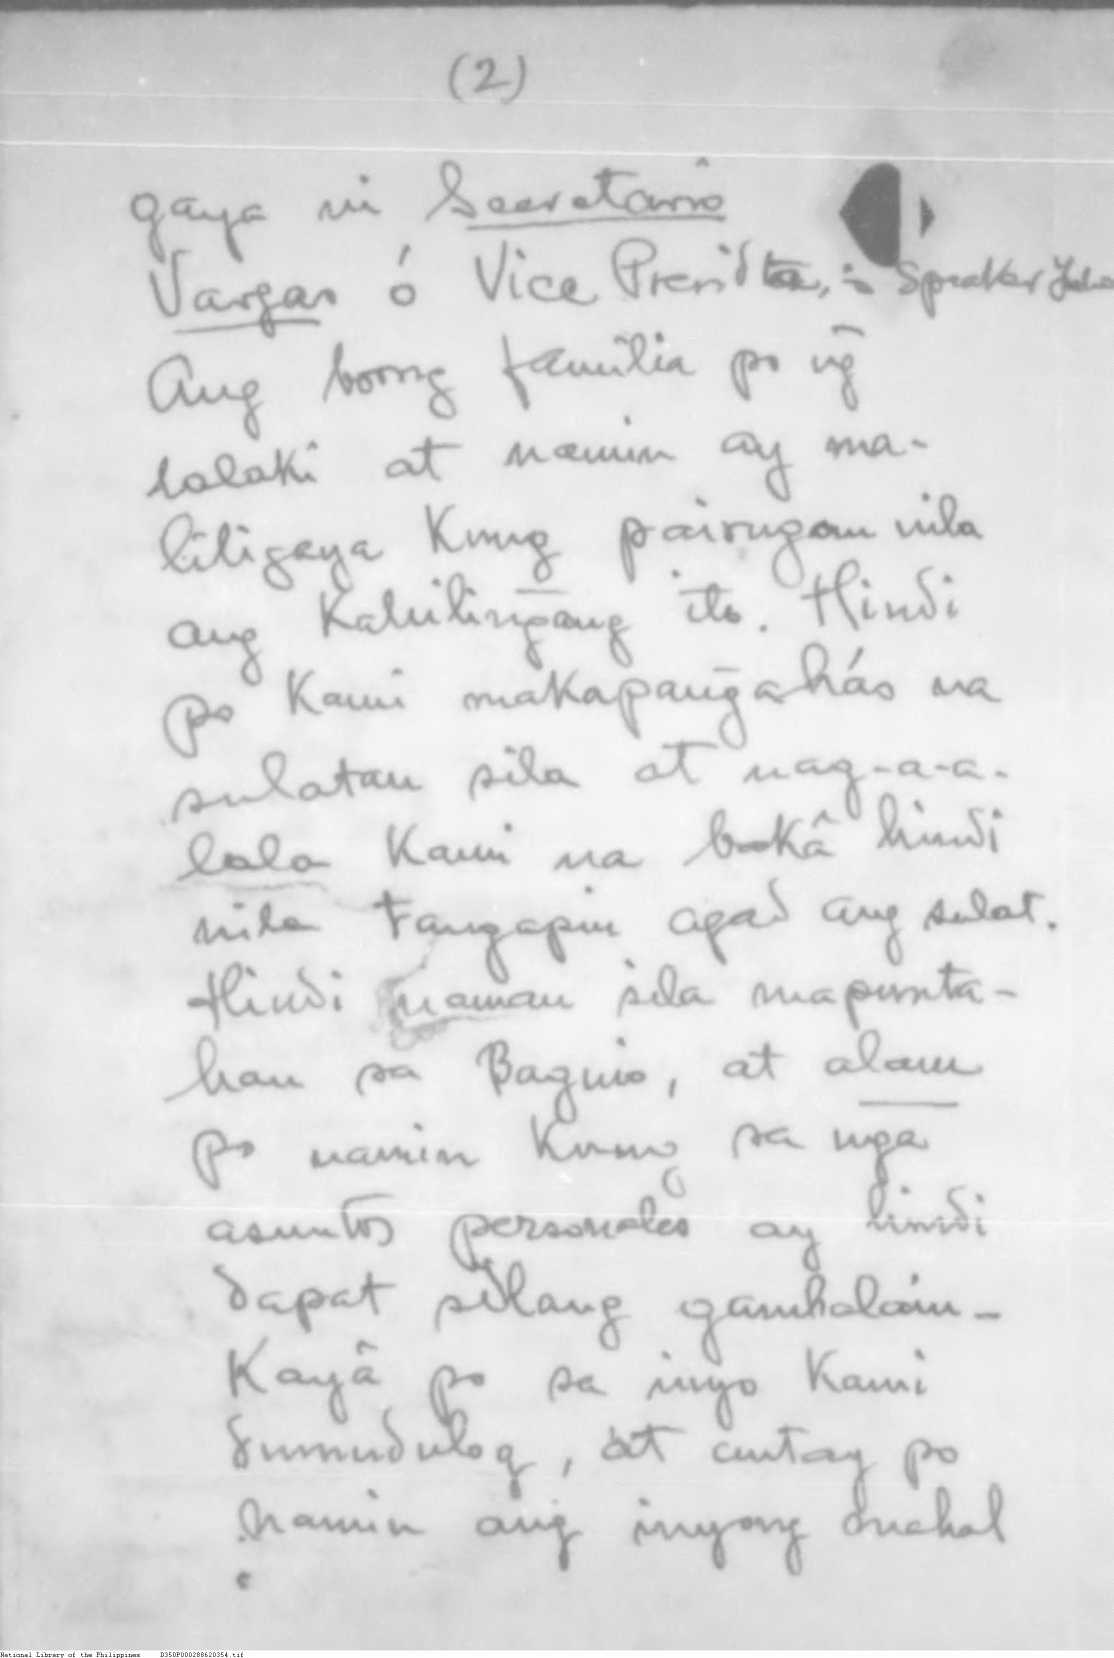 (2)
gaya ni Secretario
Vargas ó Vice Presidte, ó Speaker
Ang boong familia po n͠g
lalaki at namin ay ma-
liligaya Kung pairugan nila
ang Kahilin͠gang ito. Hindi
po Kami makapan͠gahás na
sulatan sila at nag-a-a-
lala Kami na bakâ hindi
nila tangapin agad ang sulat.
Hindi naman sila mapunta-
han sa Baguio, at alam
po namin Kung sa mga
asuntos personales ay hindi
dapat silang gambalain-
Kayâ po sa inyo Kami
dumudulog, at antay po
namin ang inyong
National Library of the Philippines D350P000288620354.tif